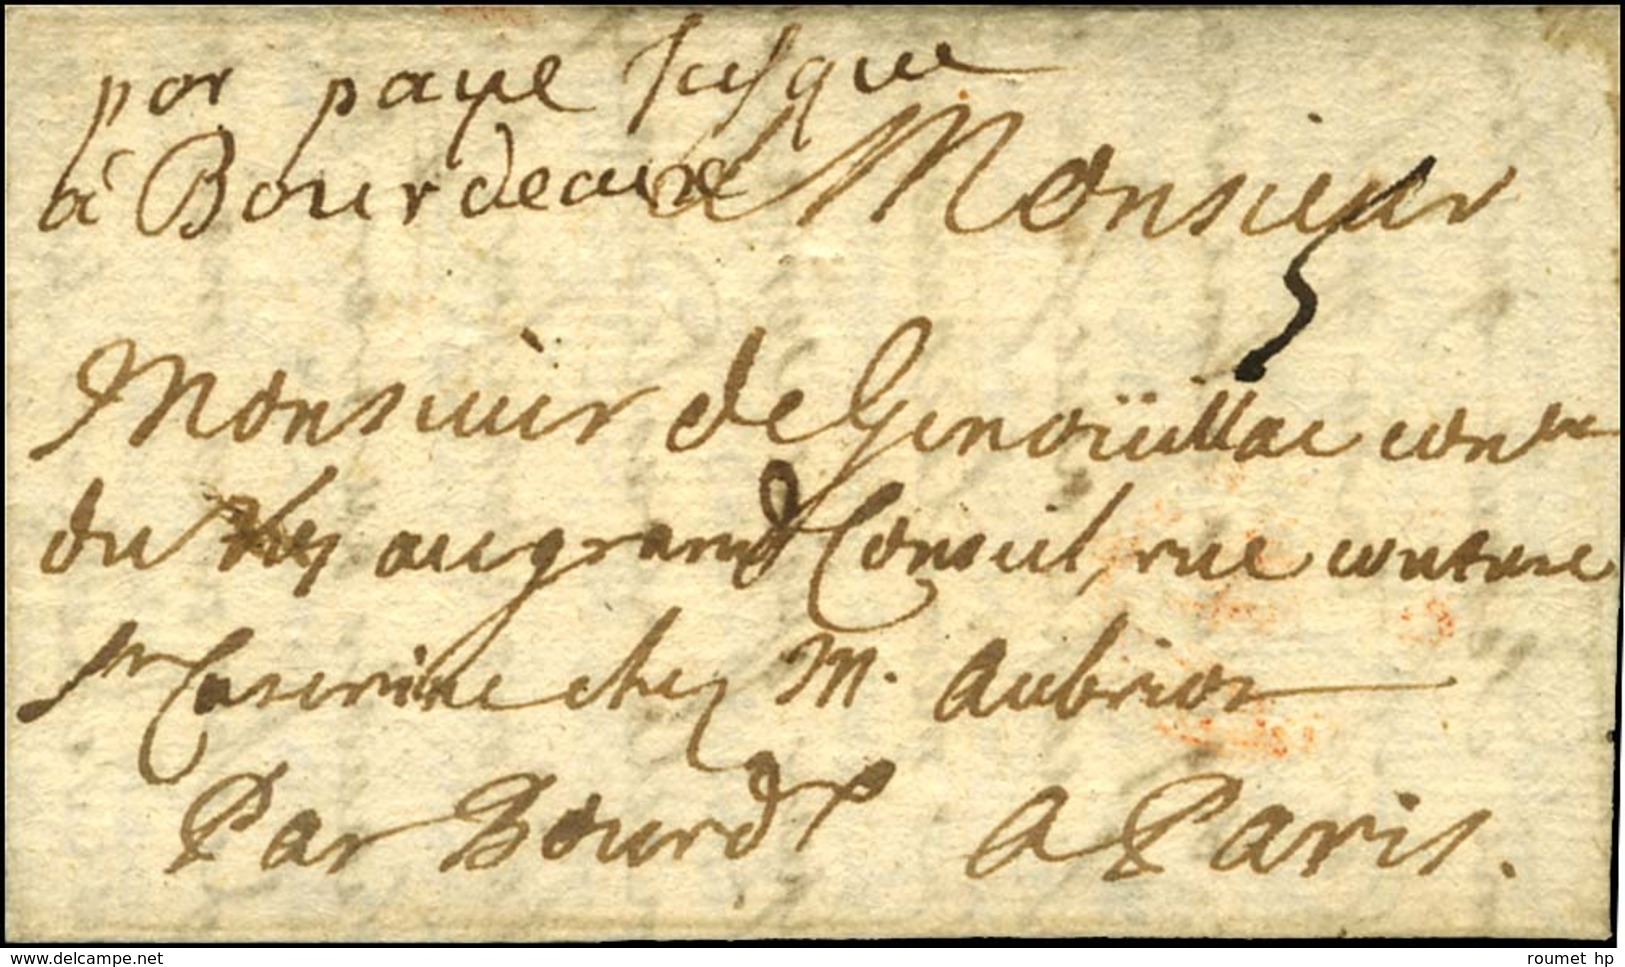 por paye Jusque
à Bourdeaux
a Monsieur
5
Monsieur de Genoüillac con^er
du Roy au grand Conseil, rue couture
s^te Caterine chez M. Aubrion
Par Bourd^x A Paris.
delcampe.net
roumet hp